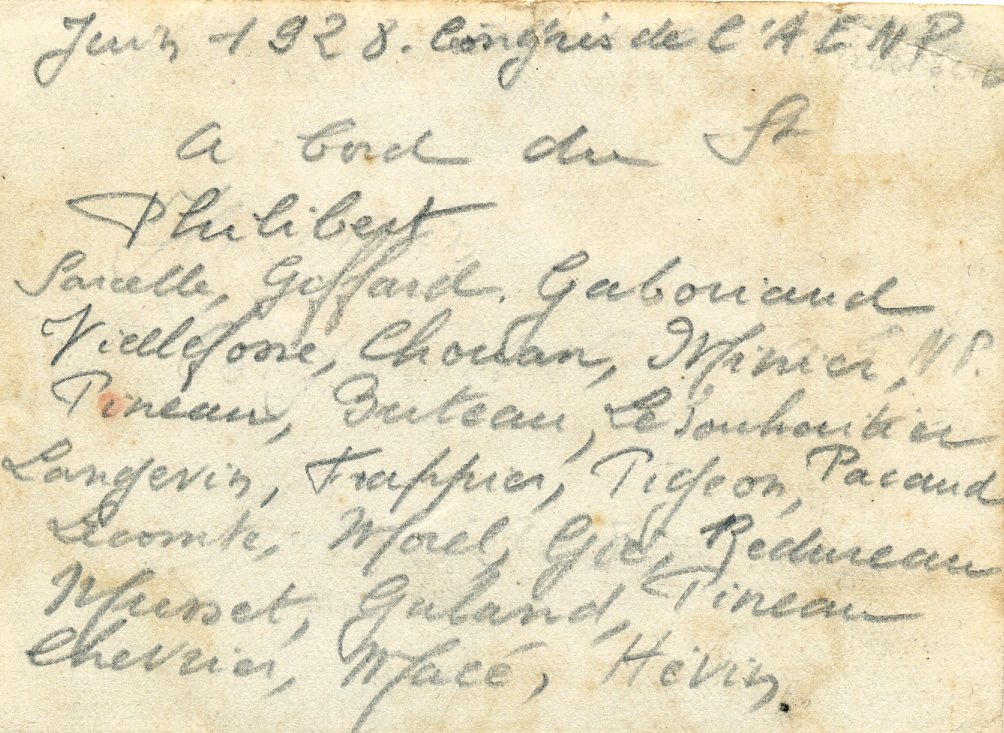 Juin 1928. Congrès de l'AENP
A bord du St
Philibert
Sarcelle, Goffard. Gabouriaud
Vieillefosse, Chouan, Minier, NP.
Pineau, Buteau,
Langevin, Frappier, Pigeon, Pacaud
Lecomte, Morel, Gié, Redureau
Musset, Galand, Pineau
Chevrier, Macé, Hévin.